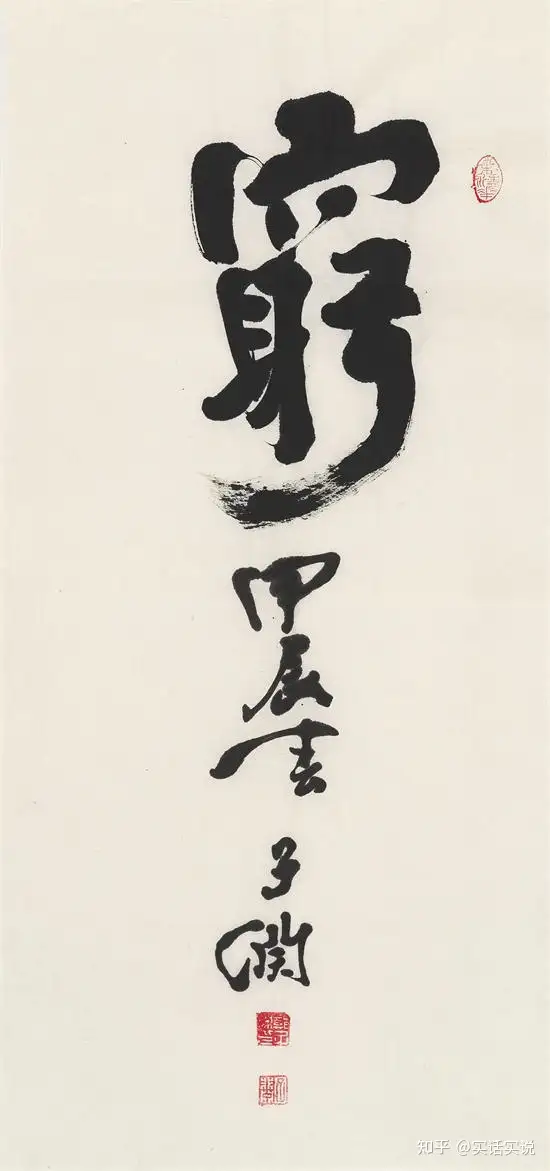 窮
甲辰春
子
知乎 @实话实说